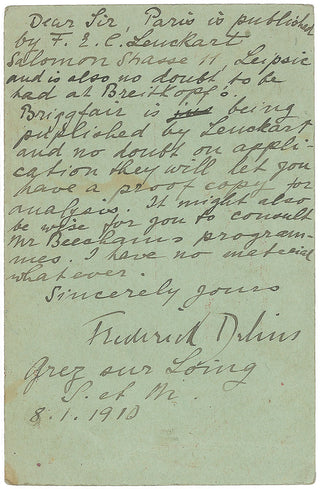 Dear Sir, Paris is published
by F. E. C. Leuckart
Salomon Strasse 11, Leipsic
and is also no doubt to be
had at Breitkopf's.
Briggfair is being
puplished by Leuckart
and no doubt on appli-
cation they will let you
have a proof copy for
analysis. It might also
be wise for you to consult
Mr Beecham's program-
mes. I have no material
whatever.
Sincerely yours
Frederick Delius
Grez sur Loing
S. et M.
8.1.1910